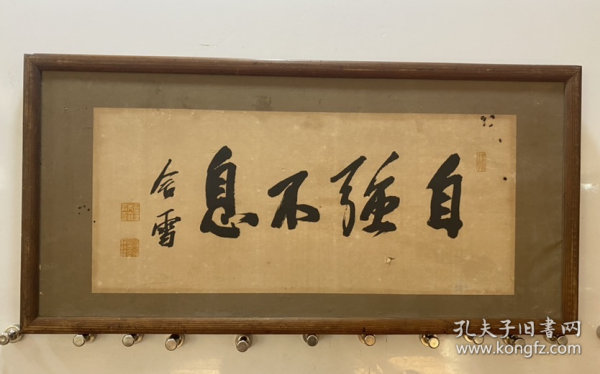 自強不息
含雪
孔夫子旧書网
www.kongfz.com